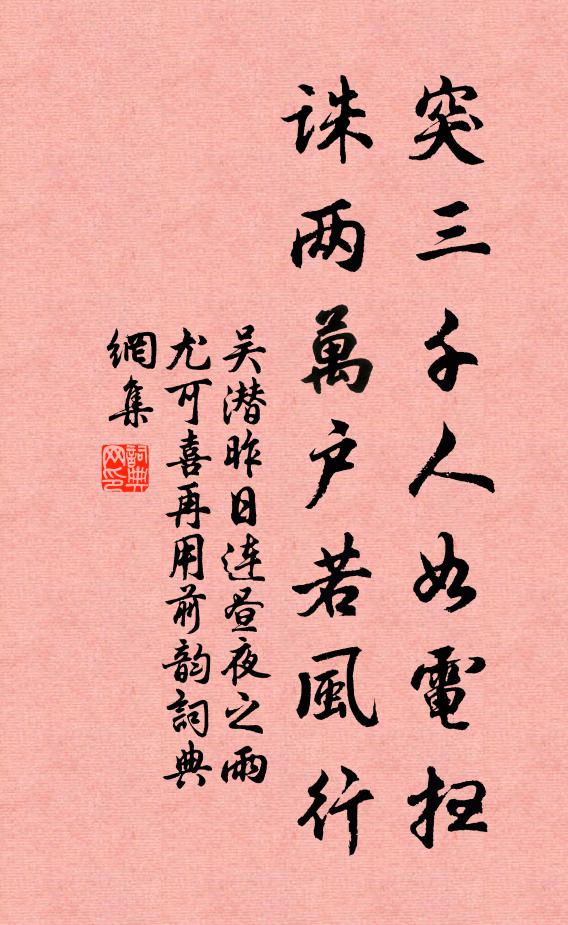 突三千人如電扫
诛两萬户若風行
吴潜昨日连昼夜之雨
尤可喜再用前韵詞典
網集
詞典网印